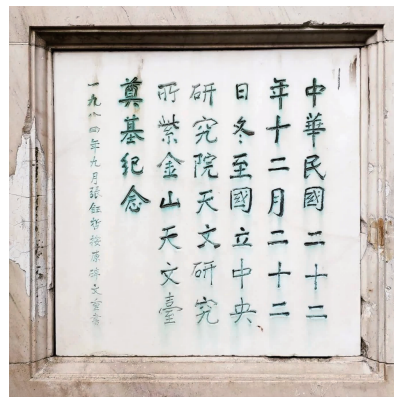 中華民國二十二
年十二月二十二
日冬至國立中央
研究院天文研究
所紫金山天文臺
奠基纪念
一九八四年九月張鈺哲按原碑文重書